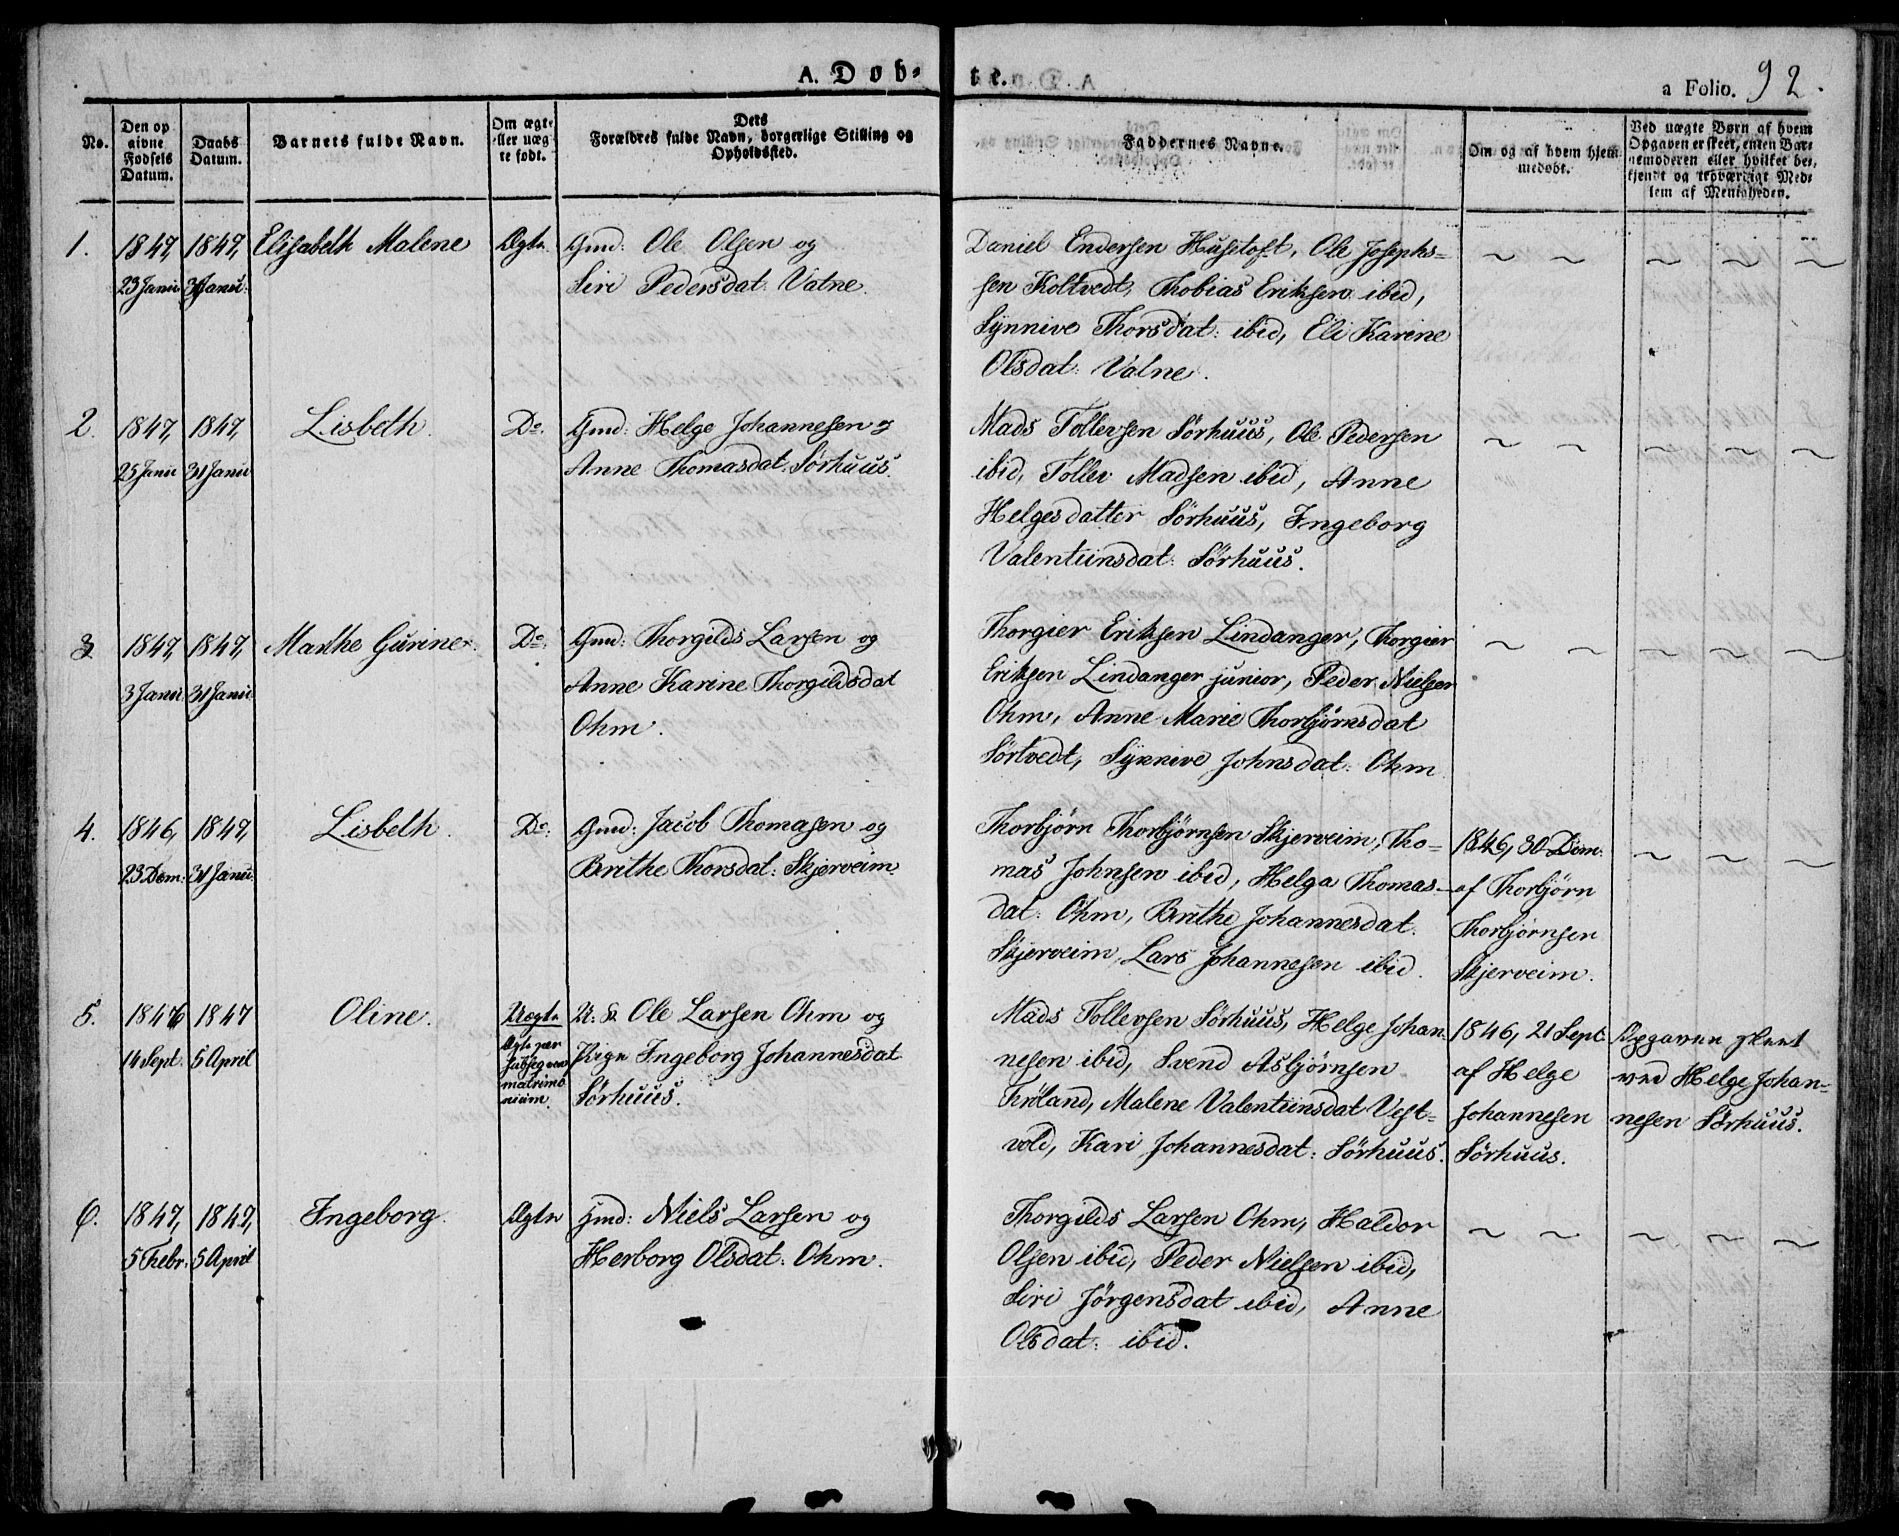 A. Döb-
te.
a Folio. 92.
No.
Den op
givne
Födsels
Datum.
Daabs
Datum.
Barnets fulde Navn.
Om ægte
eller uæg
te født.
Dets
Forældres fulde Navn, borgerlige Stilling og
Opholdssted.
Faddernes Navne.
Om og af hvem hjem
medøbt.
Ved uægte Børn af hvem
Opgaven er skeet, enten Bar-
nemoderen eller hvilket be-
kjendt og troværdigt Med-
lem af Menigheden.
1. 1847, 1847, Elisabeth Malene Ægte Gmd: Ole Olsen og
23 Janu 31 Janu: Siri Pedersdat: Vatne.
Daniel Endersen Hustoft, Ole Josephs=
sen Koltvedt, Thobias Eriksen ibid,
Synnive Thorsdat: ibid, Eli Karine
Olsdat: Vatne.
~ ~ ~ ~ ~
2. 1847, 1847, Lisbeth. Do. Gmd: Helge Johannesen og
25 Janu 31 Janu Anne Thomasdat: Sørhuus.
Mads Tollevsen Sørhuus, Ole Pedersen
ibid, Tollev Madsen ibid, Anne
Helgesdatter Sørhuus, Ingeborg
Valentinsdat: Sørhuus.
~ ~ ~ ~ ~
3. 1847, 1847, Marthe Gurine. Do: Gmd: Thorgilds Larsen og
3 Janu: 31 Janu Anne Karine Thorgildsdat
Ohm.
Thorgier Eriksen Lindanger, Thorgier
Eriksen Lindanger junior, Peder Nielsen
Ohm, Anne Marie Thorbjørnsdat
Sørtvedt, Synnive Johnsdat: Ohm
~ ~ ~ ~ ~
4. 1846, 1847, Lisbeth. Do: Gmd: Jacob Thomasen og
23 Dem: 31 Janu: Brithe Thorsdat: Skjerveim
Thorbjørn Thorbjørnsen Skjerveim, Tho=
mas Johnsen ibid, Helga Thomas-
dat: Ohm, Brithe Johannesdat.
Skjerveim, Lars Johannesen ibid.
1846, 30 Dem:
af Thorbjørn
Thorbjørnsen
Skjerveim.
~ ~ ~
5. 1846 1847 Oline. Uægte U. K. Ole Larsen Ohm og
14 Sept: 5 April Ægte per
subseqvens
matrimo
nium. Pige Ingeborg Johannesdat
Sørhuus.
Mads Tollevsen Sørhuus, Helge Johan
nesen ibid, Svend Asbjørnsen
Frøland, Malene Valentinsdat Vest=
vold, Kari Johannesdat: Sørhuus.
1846, 21 Sept.
af Helge
Johannesen
Sørhuus.
Opgaven skeet
ved Helge Johan=
nesen Sørhuus.
6. 1847, 1847, Ingeborg. Ægte Gmd: Niels Larsen og
5 Febr: 5 April Herborg Olsdat: Ohm.
Thorgilds Larsen Ohm, Haldor
Olsen ibid, Peder Nielsen ibid,
Siri Jørgensdat ibid, Anne
Olsdat: ibid.
~ ~ ~ ~ ~